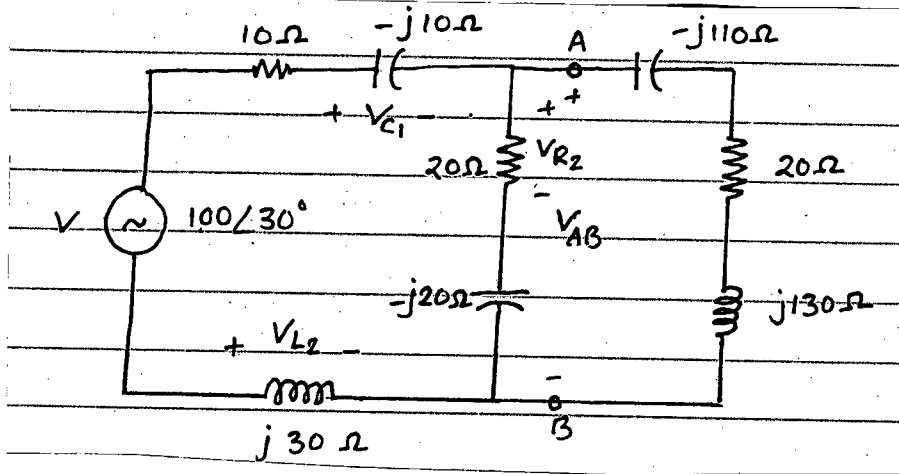 10Ω
-j10Ω
A
-j110Ω
+ V_C1 -
+ +
20Ω
V_R2
-
20Ω
V
~
100∠30°
V_AB
-j20Ω
j130Ω
+ V_L2 -
-
B
j 30 Ω